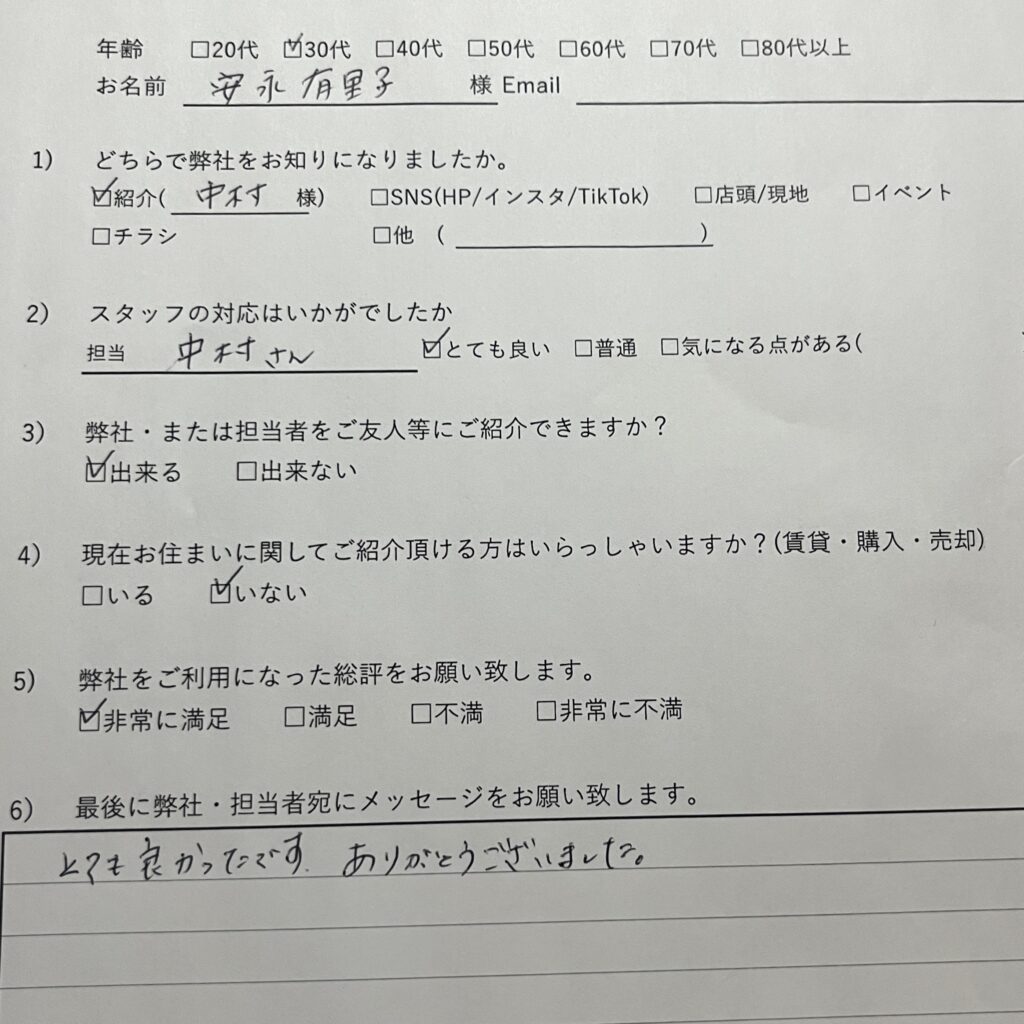 年齢 □20代 ☑30代 □40代 □50代 □60代 □70代 □80代以上
お名前 安永有里子 様 Email
1) どちらで弊社をお知りになりましたか。
☑紹介( 中村 様) □SNS(HP/インスタ/TikTok) □店頭/現地 □イベント
□チラシ □他 ( )
2) スタッフの対応はいかがでしたか
担当 中村さん ☑とても良い □普通 □気になる点がある(
3) 弊社・または担当者をご友人等にご紹介できますか?
☑出来る □出来ない
4) 現在お住まいに関してご紹介頂ける方はいらっしゃいますか?(賃貸・購入・売却)
□いる ☑いない
5) 弊社をご利用になった総評をお願い致します。
☑非常に満足 □満足 □不満 □非常に不満
6) 最後に弊社・担当者宛にメッセージをお願い致します。
とても良かったです. ありがとうございました。